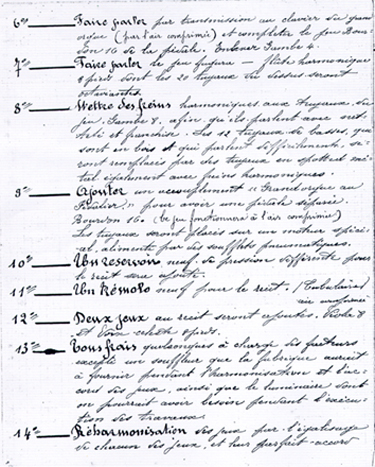 6º — Faire parler par transmission au clavier du grand
orgue (par l'air comprimé) et completer le jeu Bour-
don 16 de la pédale. Enlever Gambe 4.
7º — Faire parler le jeu — flûte harmonique
8 pieds dont les 20 tuyaux du dessus seront
octaviants.
8º — Mettre des freins harmoniques aux tuyaux du
jeu Gambe 8, afin qu'ils parlent avec net-
teté et franchise. Les 12 tuyaux de basses, qui
sont en bois et qui parlent difficilement, se-
ront remplacés par des tuyaux en spotted mé-
tal également avec freins harmoniques.
9º — Ajouter un accouplement "Grand orgue au
Pédalier," pour avoir une pédale séparée.
Bourdon 16. (le jeu fonctionnera à l'air comprimé)
Les tuyaux seront placés sur un moteur spéci-
al, alimenté par des soufflets pneumatiques.
10º — Un reservoir neuf de pression differente pour
le récit sera ajouté.
11º — Un trémolo neuf pour le récit. (Tubulaire
air comprimé
12º — Deux jeux au récit seront ajoutés. Viole 8
et Voix céleste 8 pieds.
13º — Tous frais quelconques à charge des facteurs
excepté un souffleur que la fabrique aurait
à fournir pendant l'harmonisation et l'ac-
cord des jeux, ainsi que le luminaire dont
on pourrait avoir besoin pendant l'exécu-
tion des travaux.
14º — Réharmonisation des jeux par l'égalisage
de chacun des jeux, et leur parfait accord